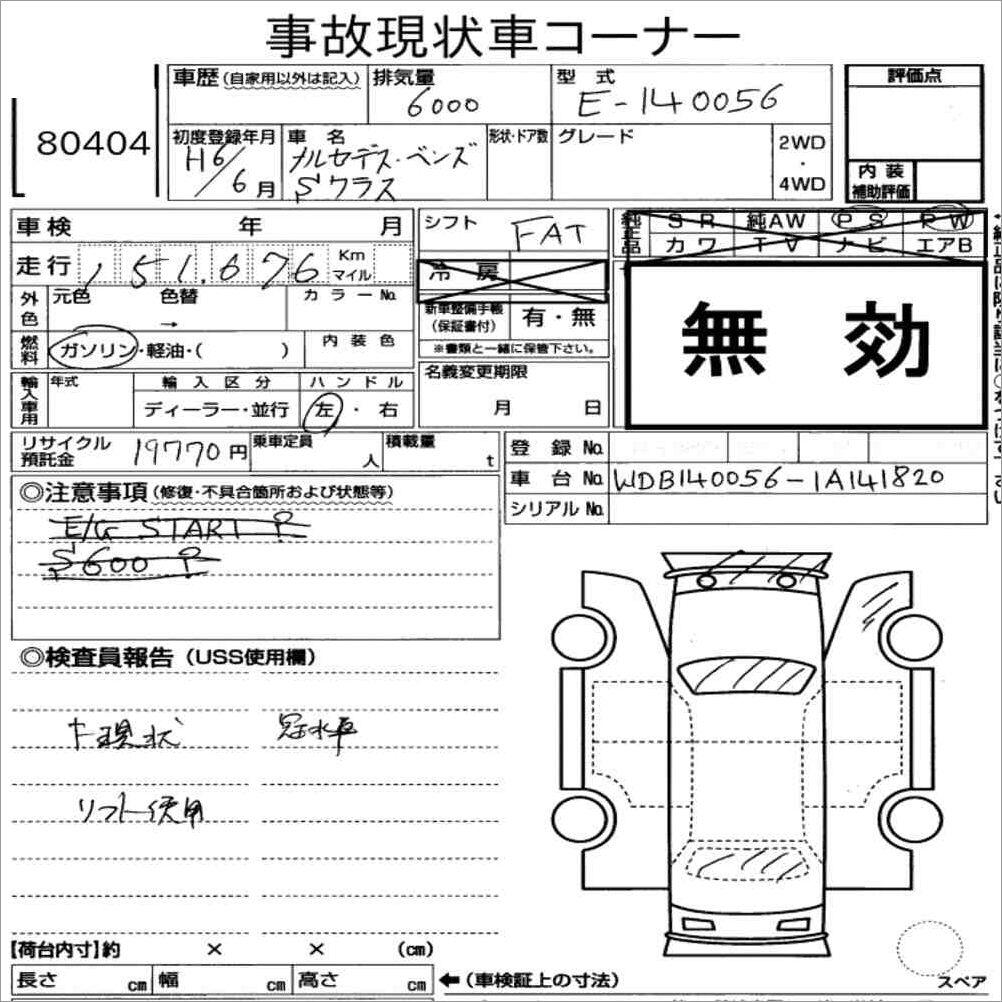 事故現状車コーナー
80404
車歴 (自家用以外は記入) 排気量 6000 型式 E-140056 評価点
初度登録年月 H6/6月 車名 メルセデス・ベンズ Sクラス 形状・ドア数 グレード 2WD・4WD
内装補助評価
車検 年 月 シフト FAT 純正品 SR 純AW PS PW
カワ TV ナビ エアB
走行 151,676 Km マイル 冷房
無効
外色 元色 色替 → カラーNo. 新車整備手帳 (保証書付) 有・無
燃料 ガソリン・軽油・( ) 内装色 ※書類と一緒に保管下さい。
輸入車用 年式 輸入区分 ディーラー・並行 ハンドル 左・右 名義変更期限 月 日
リサイクル預託金 19770円 乗車定員 人 積載量 t 登録No.
車台No. WDB140056-1A141820
シリアルNo.
◎注意事項 (修復・不具合箇所および状態等)
E/G START ?
S600 ?
◎検査員報告 (USS使用欄)
現状 冠水車
リフト使用
【荷台内寸】約 × × (cm)
長さ cm 幅 cm 高さ cm ←(車検証上の寸法)
スペア